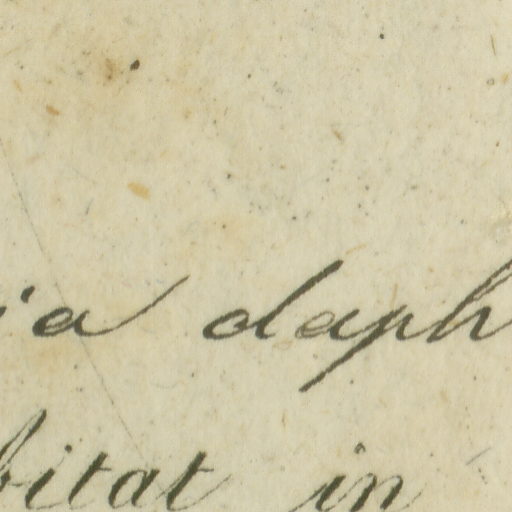 ia daph
bitat in